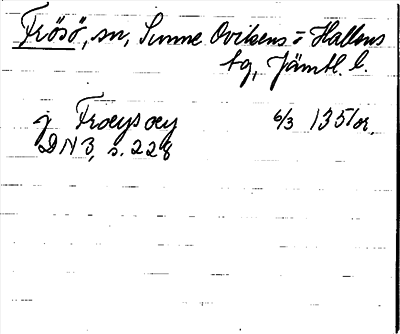 Frösö, sn, Sunne Ovikens o Hallens
tg, Jämtl. l.
j Frœysœy 6/3 1351 or.
DN 3, s. 228